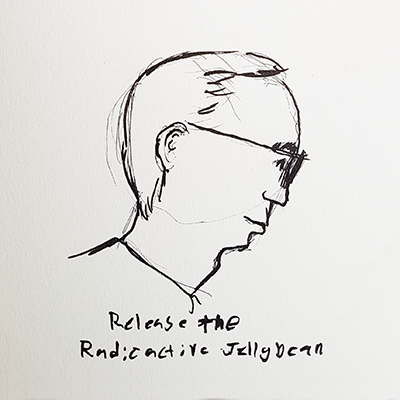 Release the
Radioactive Jellybean